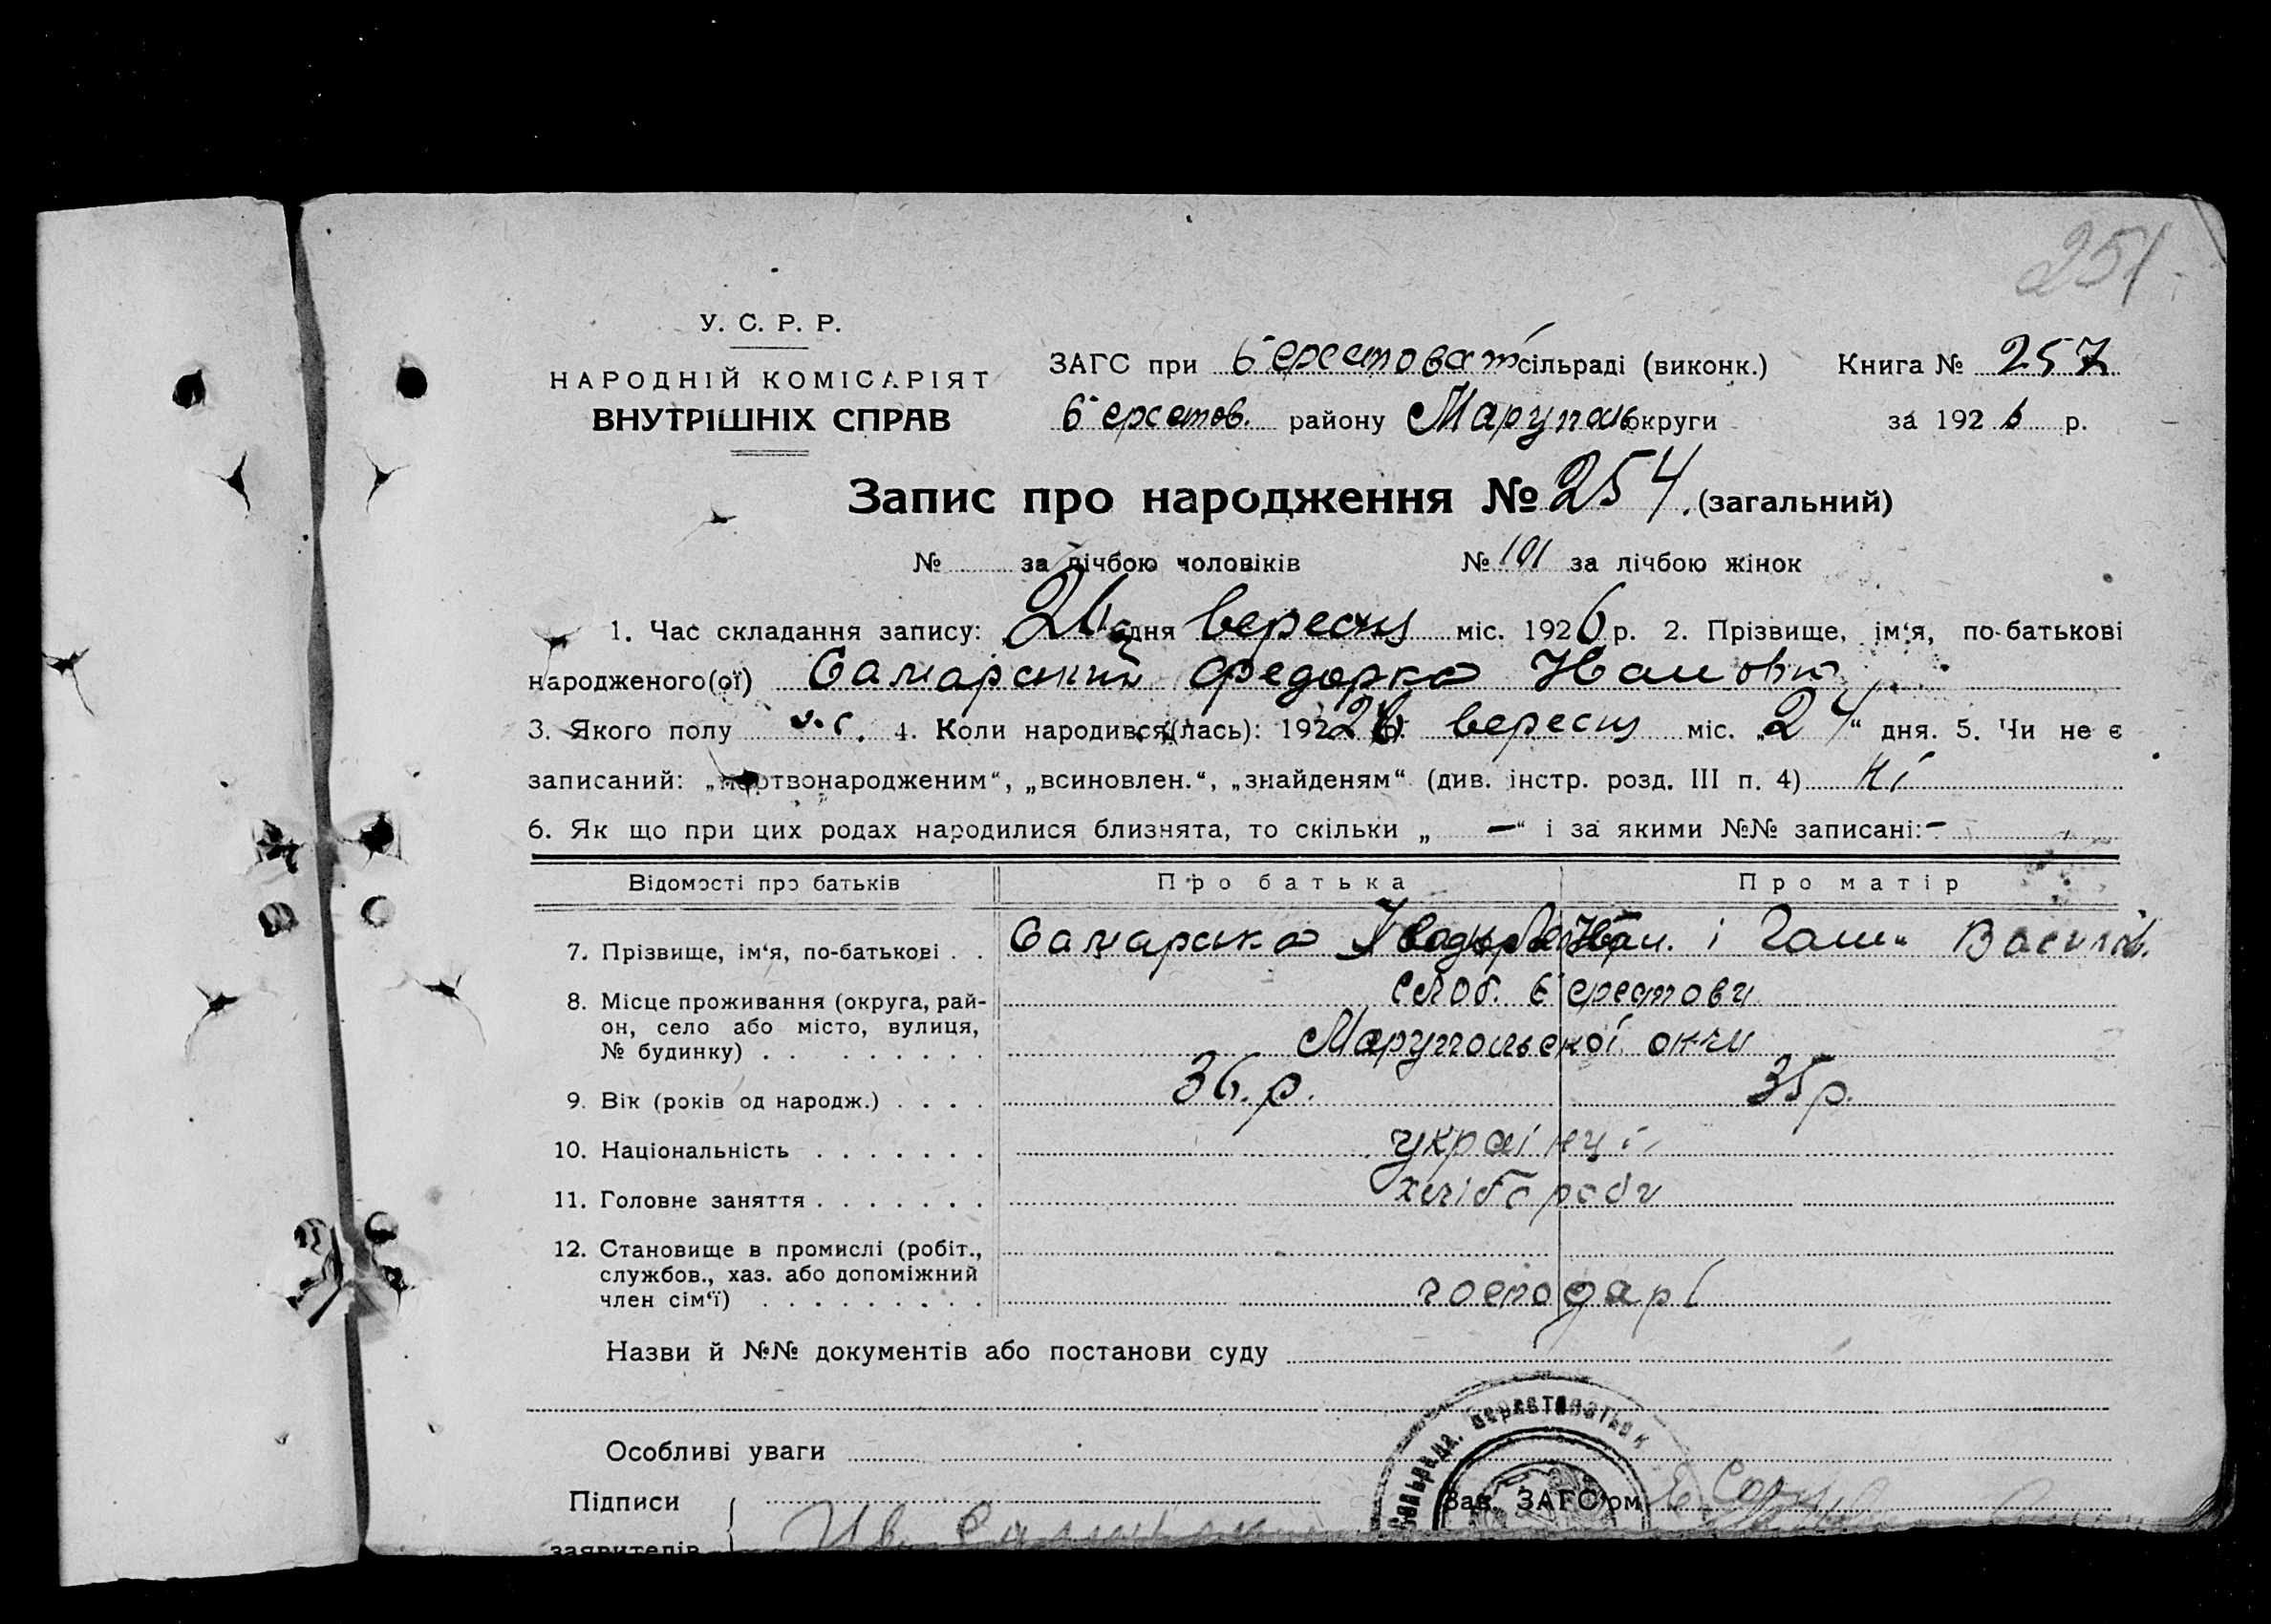 251
У. С. Р. Р.
НАРОДНІЙ КОМІСАРІЯТ
ВНУТРІШНІХ СПРАВ
ЗАГС при Берестоват сільраді (виконк.) Книга № 257
Берестов. району Маруполь округи за 1926 р.
Запис про народження № 254. (загальний)
№ за лічбою чоловіків № 101 за лічбою жінок
1. Час складання запису: дня вересня міс. 1926 р. 2. Прізвище, ім‘я, по-батькові
народженого(ої) Самарський Федорка
3. Якого полу 4. Коли народився(лась): 192 вересня міс. „24“ дня. 5. Чи не є
записаний: „мертвонародженим“, „всиновлен.“, „знайденям“ (див. інстр. розд. III п. 4) Ні
6. Як що при цих родах народилися близнята, то скільки „ —“ і за якими №№ записані: –
Відомості про батьків Про батька Про матір
7. Прізвище, ім‘я, по-батькові . . Самарсько Іван. і Василів.
8. Місце проживання (округа, рай-
он, село або місто, вулиця,
№ будинку) . . . . . . . . . слоб. Берестови
Марупольської окчи
9. Вік (років од народж.) . . . . 36. р. 35 р.
10. Національність . . . . . . . українці
11. Головне заняття . . . . . . . хліборобы
12. Становище в промислі (робіт.,
службов., хаз. або допоміжний
член сім‘ї) . . . . . . . . . господарі
Назви й №№ документів або постанови суду
Особливі уваги
Підписи Зав. ЗАГС‘ом
заявителів Ив. Самарський